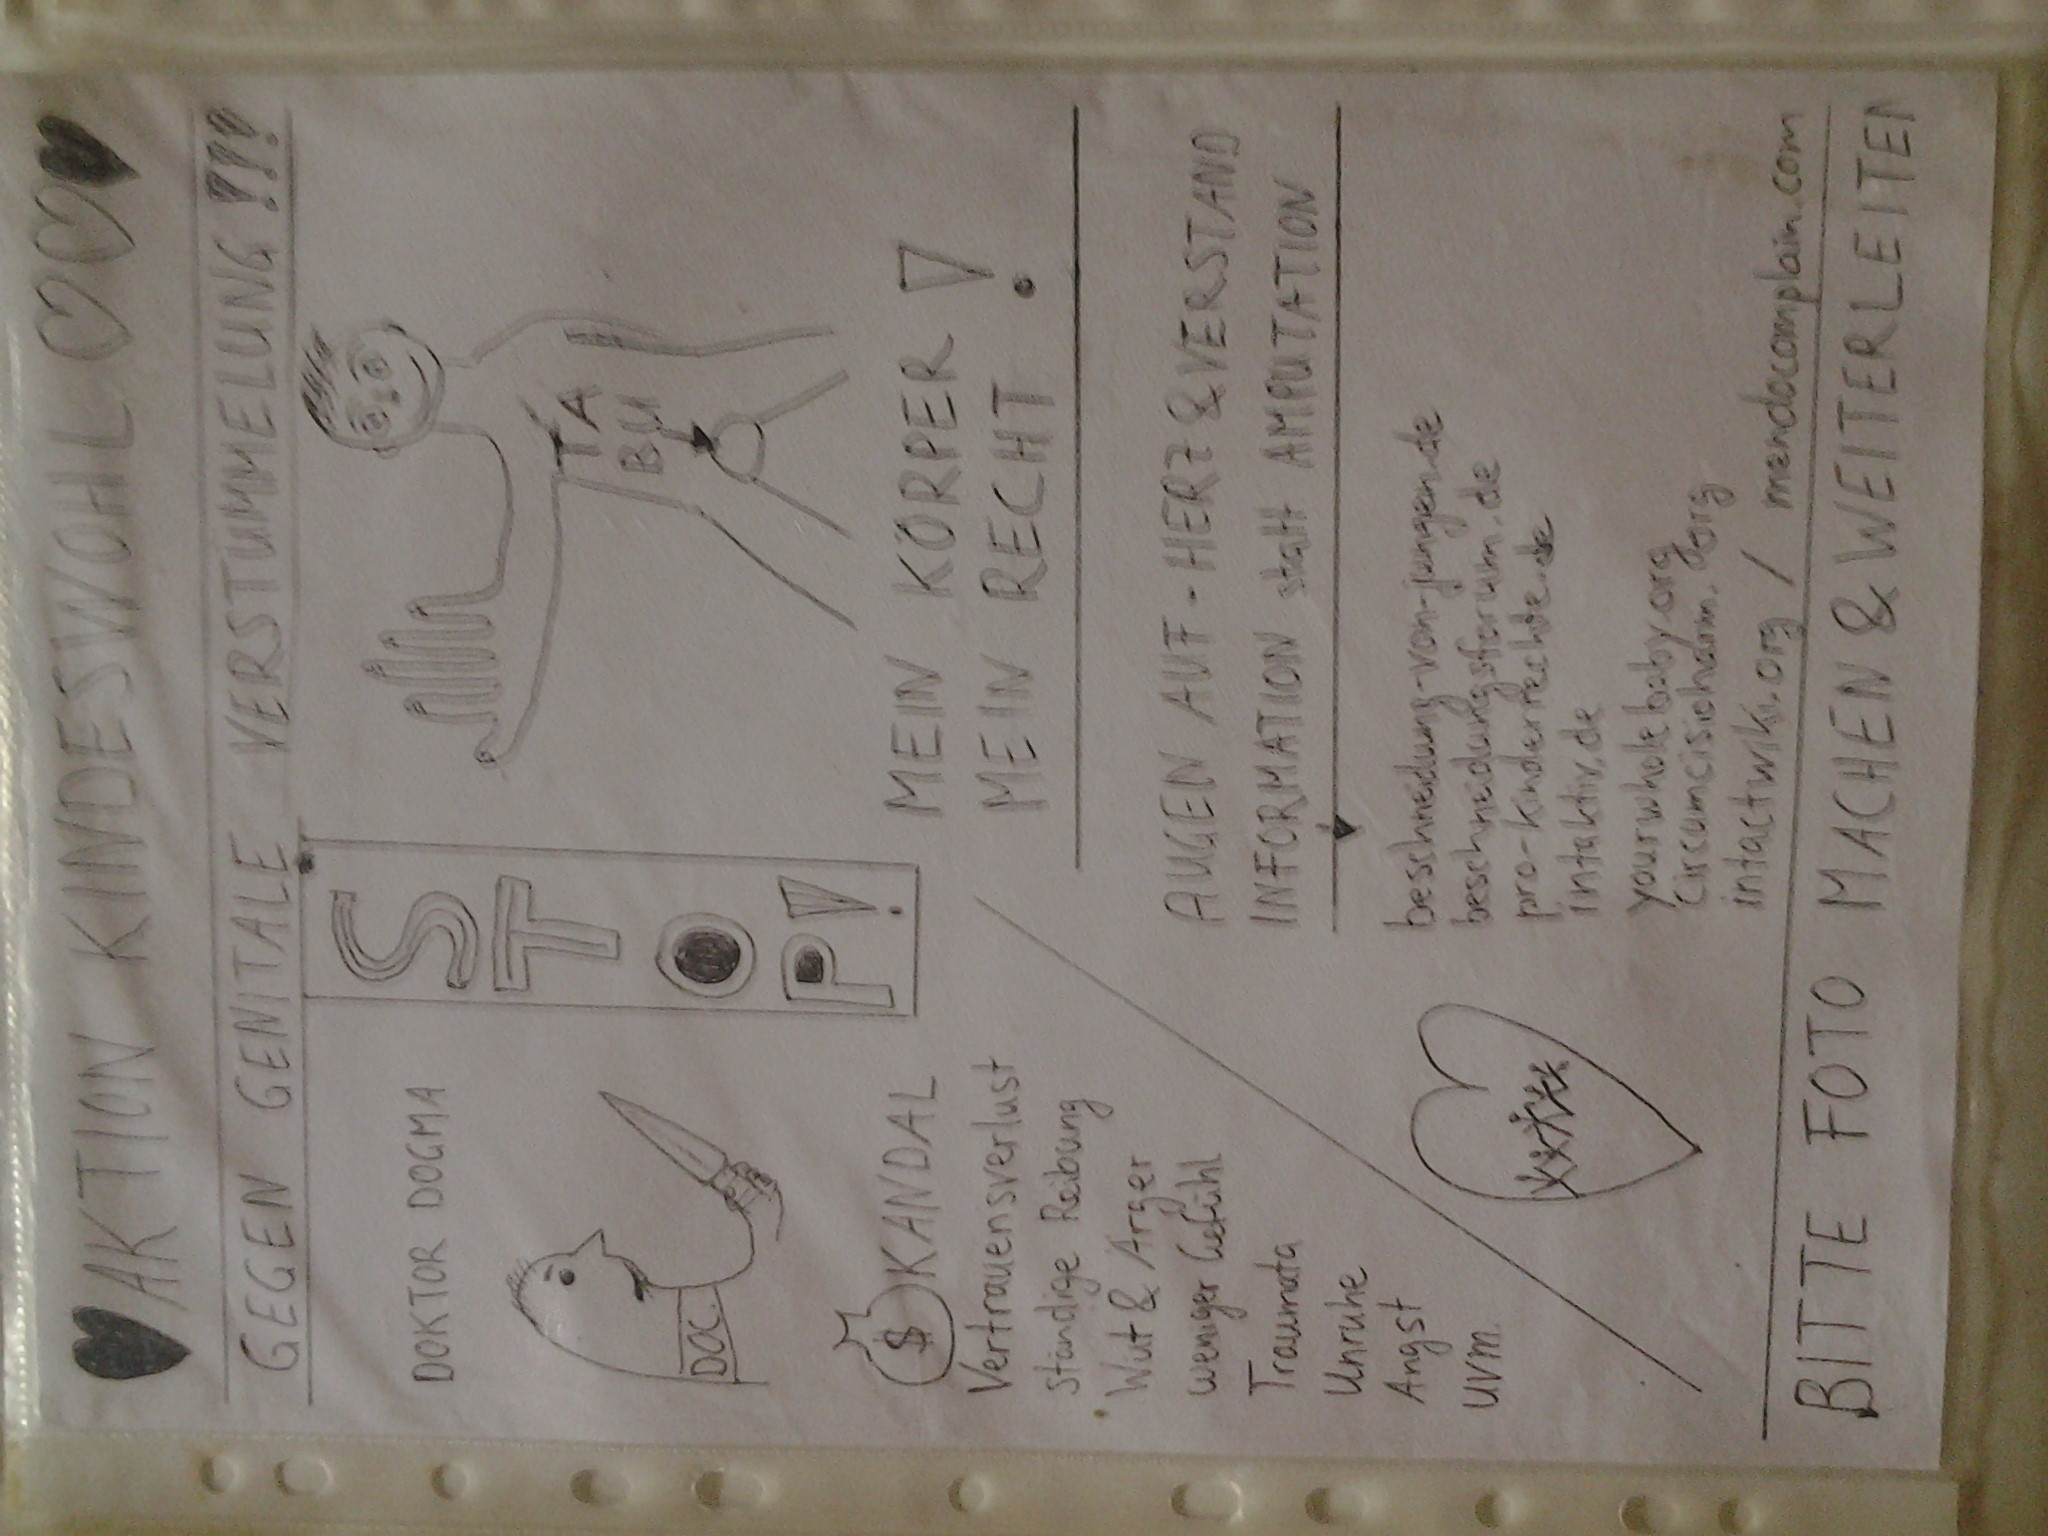 AKTION KINDESWOHL
GEGEN GENITALE VERSTÜMMELUNG !!!
DOKTOR DOGMA
DOC.
STOP!
TABU
MEIN KÖRPER
MEIN RECHT !
$KANDAL
Vertrauensverlust
ständige Reibung
Wut & Ärger
weniger Gefühl
Traumata
Unruhe
Angst
uvm.
AUGEN AUF - HERZ & VERSTAND
INFORMATION statt AMPUTATION
beschneidung-von-jungen.de
beschneidungsforum.de
pro-kinderrechte.de
intaktiv.de
yourwholebaby.org
intactwiki.org / mendocomplain.com
BITTE FOTO MACHEN & WEITERLEITEN